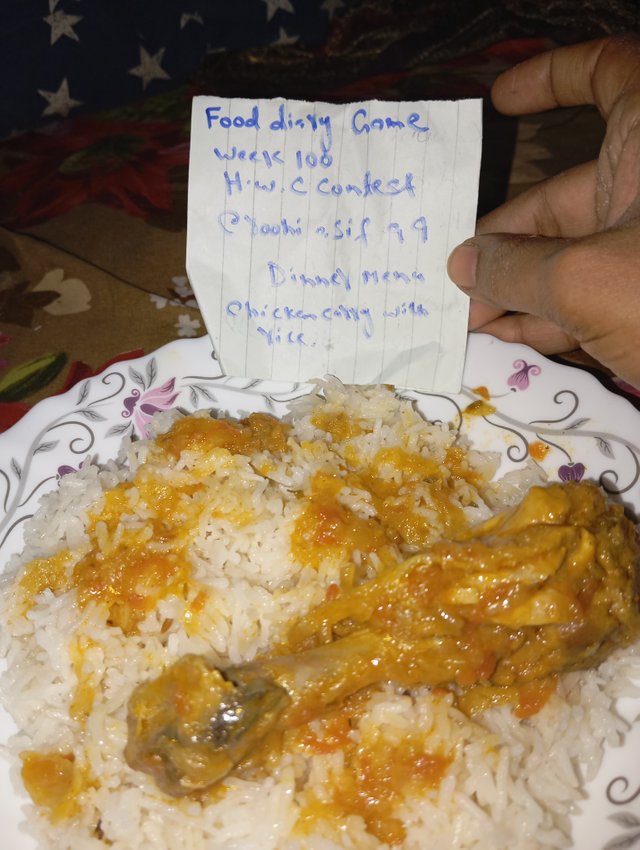 Food diary Game
Week 100
H.W.C Contest
Choohi asif 99
Dinner menu
Chicken curry with
rice.